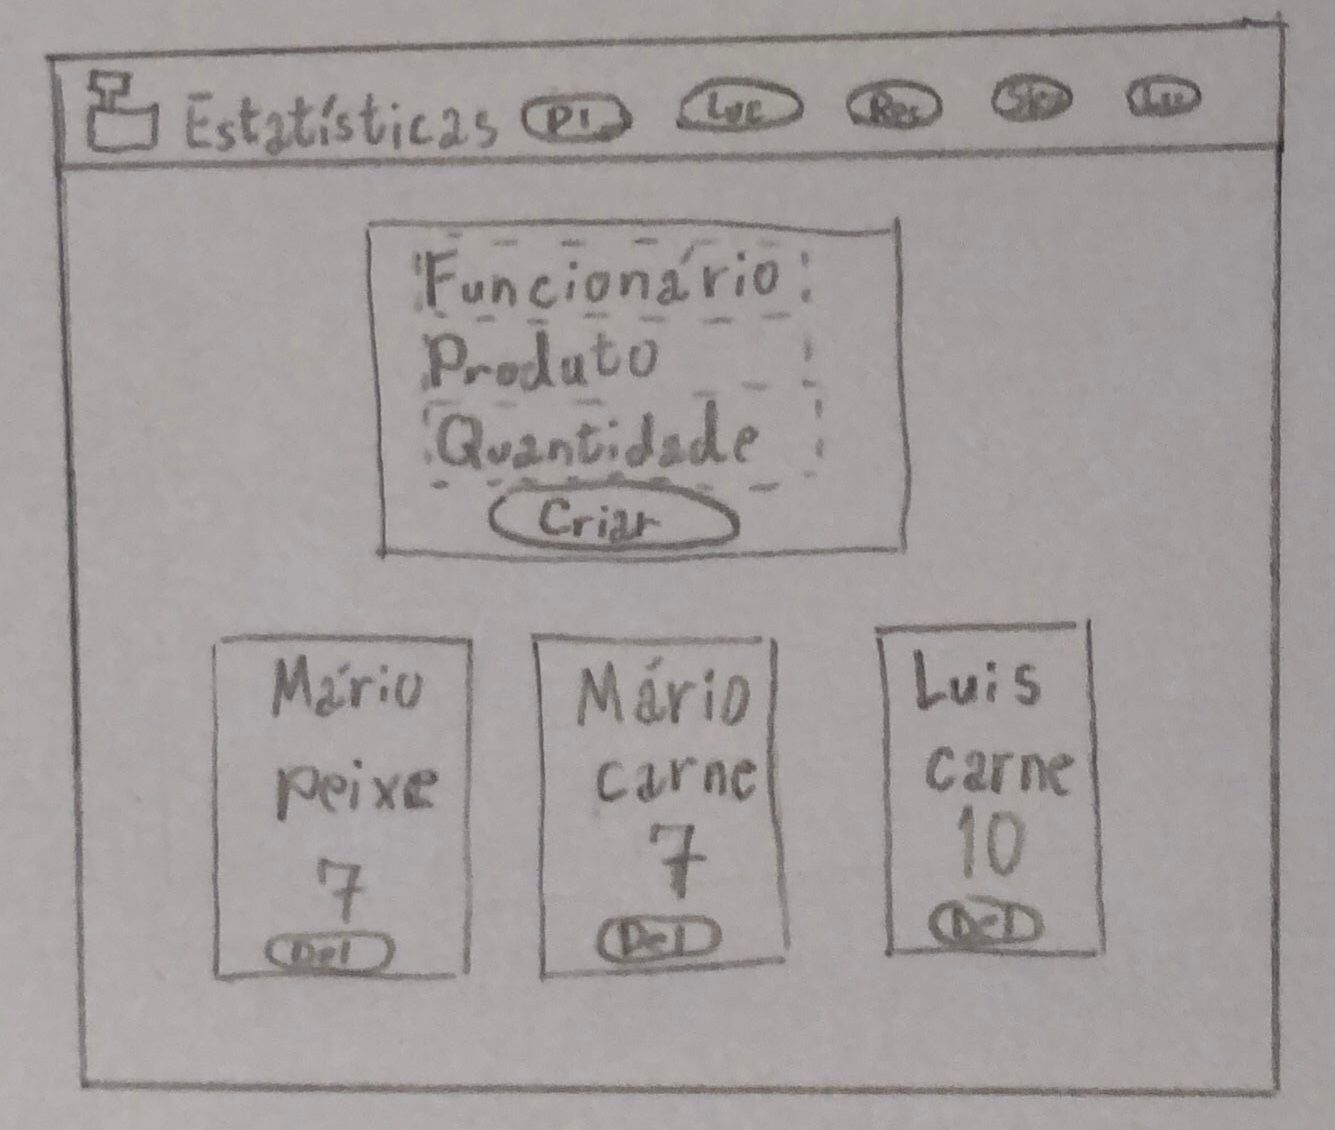 Estatísticas PI Luc Rec
Funcionário
Produto
Quantidade
Criar
Mário
peixe
7
Del
Mário
carne
7
Del
Luis
carne
10
Del